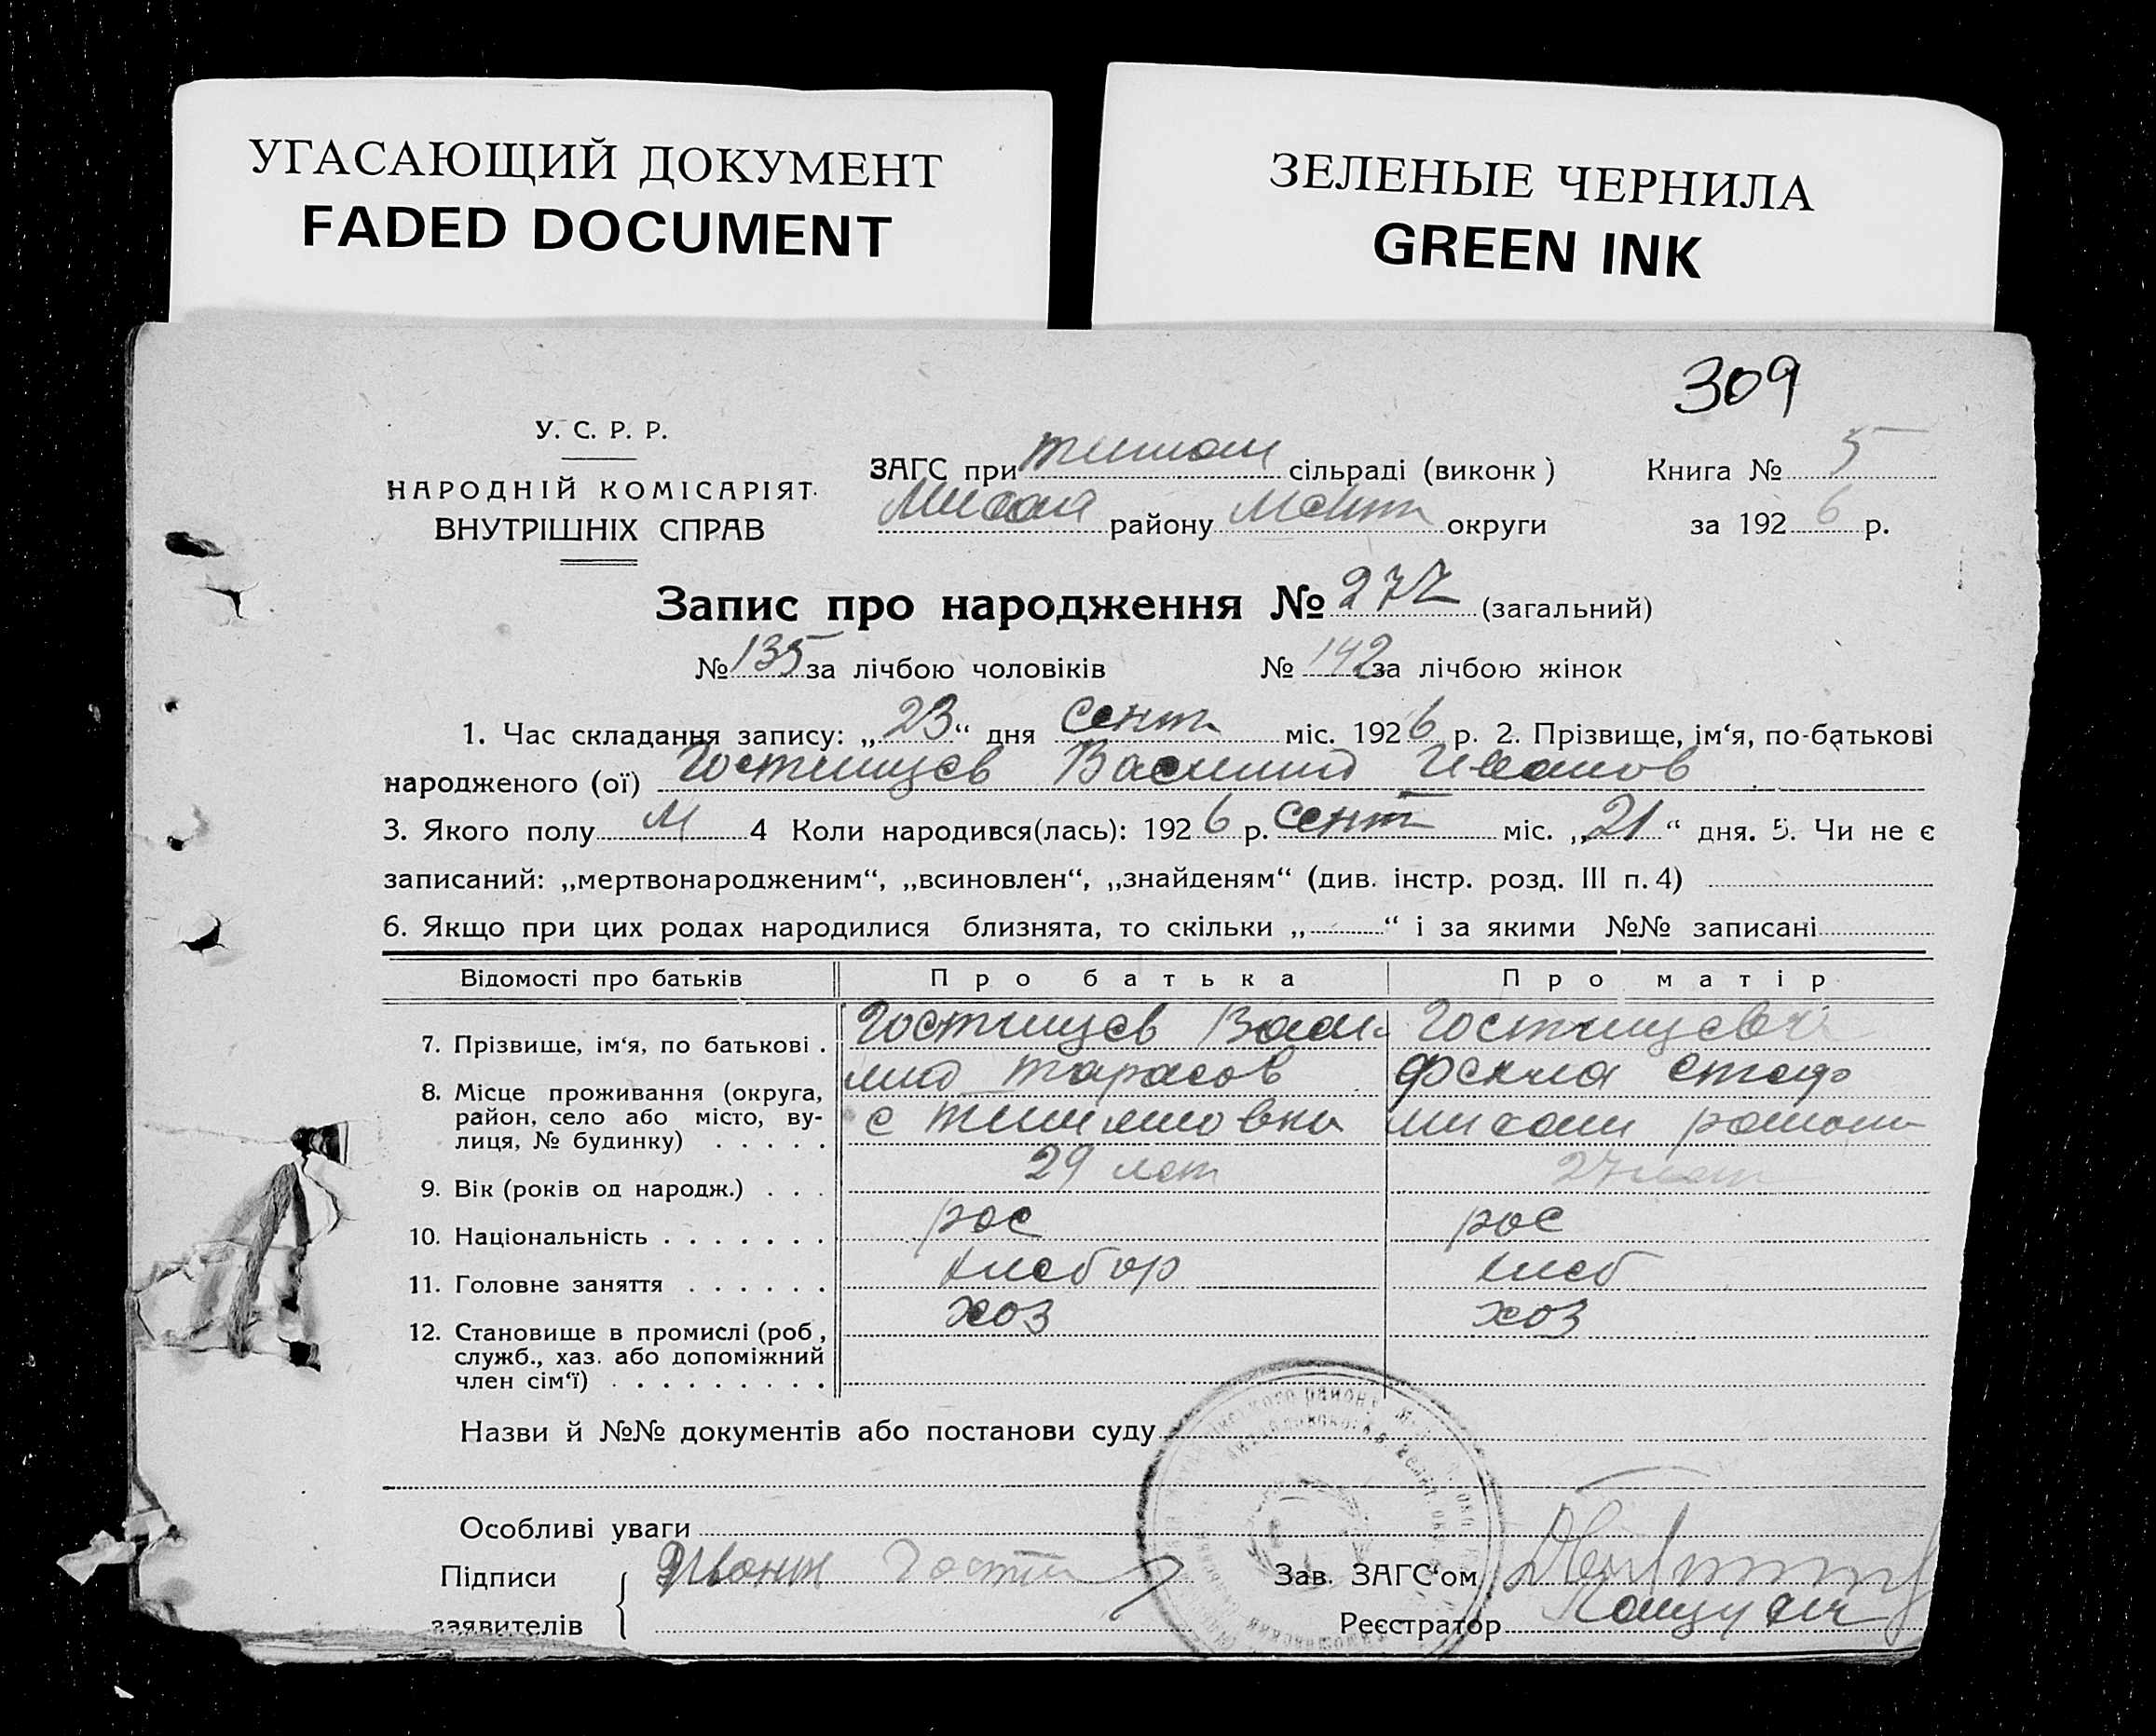 УГАСАЮЩИЙ ДОКУМЕНТ
FADED DOCUMENT
ЗЕЛЕНЫЕ ЧЕРНИЛА
GREEN INK
309
У. С. Р. Р.
НАРОДНІЙ КОМІСАРІЯТ
ВНУТРІШНІХ СПРАВ
ЗАГС при тимош сільраді (виконк) Книга № 5
району Меліт округи за 1926 р.
Запис про народження № 277 (загальний)
№ 135 за лічбою чоловіків № 142 за лічбою жінок
1. Час складання запису: „23“ дня сент міс. 1926 р. 2. Прізвище, ім‘я, по-батькові
народженого (ої) Гостищев Василий Иванов
3. Якого полу М 4 Коли народився(лась): 1926 р. сент міс. „21“ дня. 5. Чи не є
записаний: „мертвонародженим“, „всиновлен“, „знайденям“ (див. інстр. розд. III п. 4)
6. Якщо при цих родах народилися близнята, то скільки „ “ і за якими №№ записані
Відомості про батьків Про батька Про матір
7. Прізвище, ім‘я, по батькові . Гостищев Гостищева
тарасов фекла
8. Місце проживання (округа,
район, село або місто, ву-
лиця, № будинку) . . . . . с тимошовка
9. Вік (років од народж.) . . . 29 лет 27 лет
10. Національність . . . . . . . рос рос
11. Головне заняття . . . . . . хлебор хлеб
12. Становище в промислі (роб, хоз хоз
служб., хаз. або допоміжний
член сім‘ї) . . . . . . . . .
Назви й №№ документів або постанови суду
Особливі уваги
Підписи Зав. ЗАГС‘ом
заявителів Реєстратор